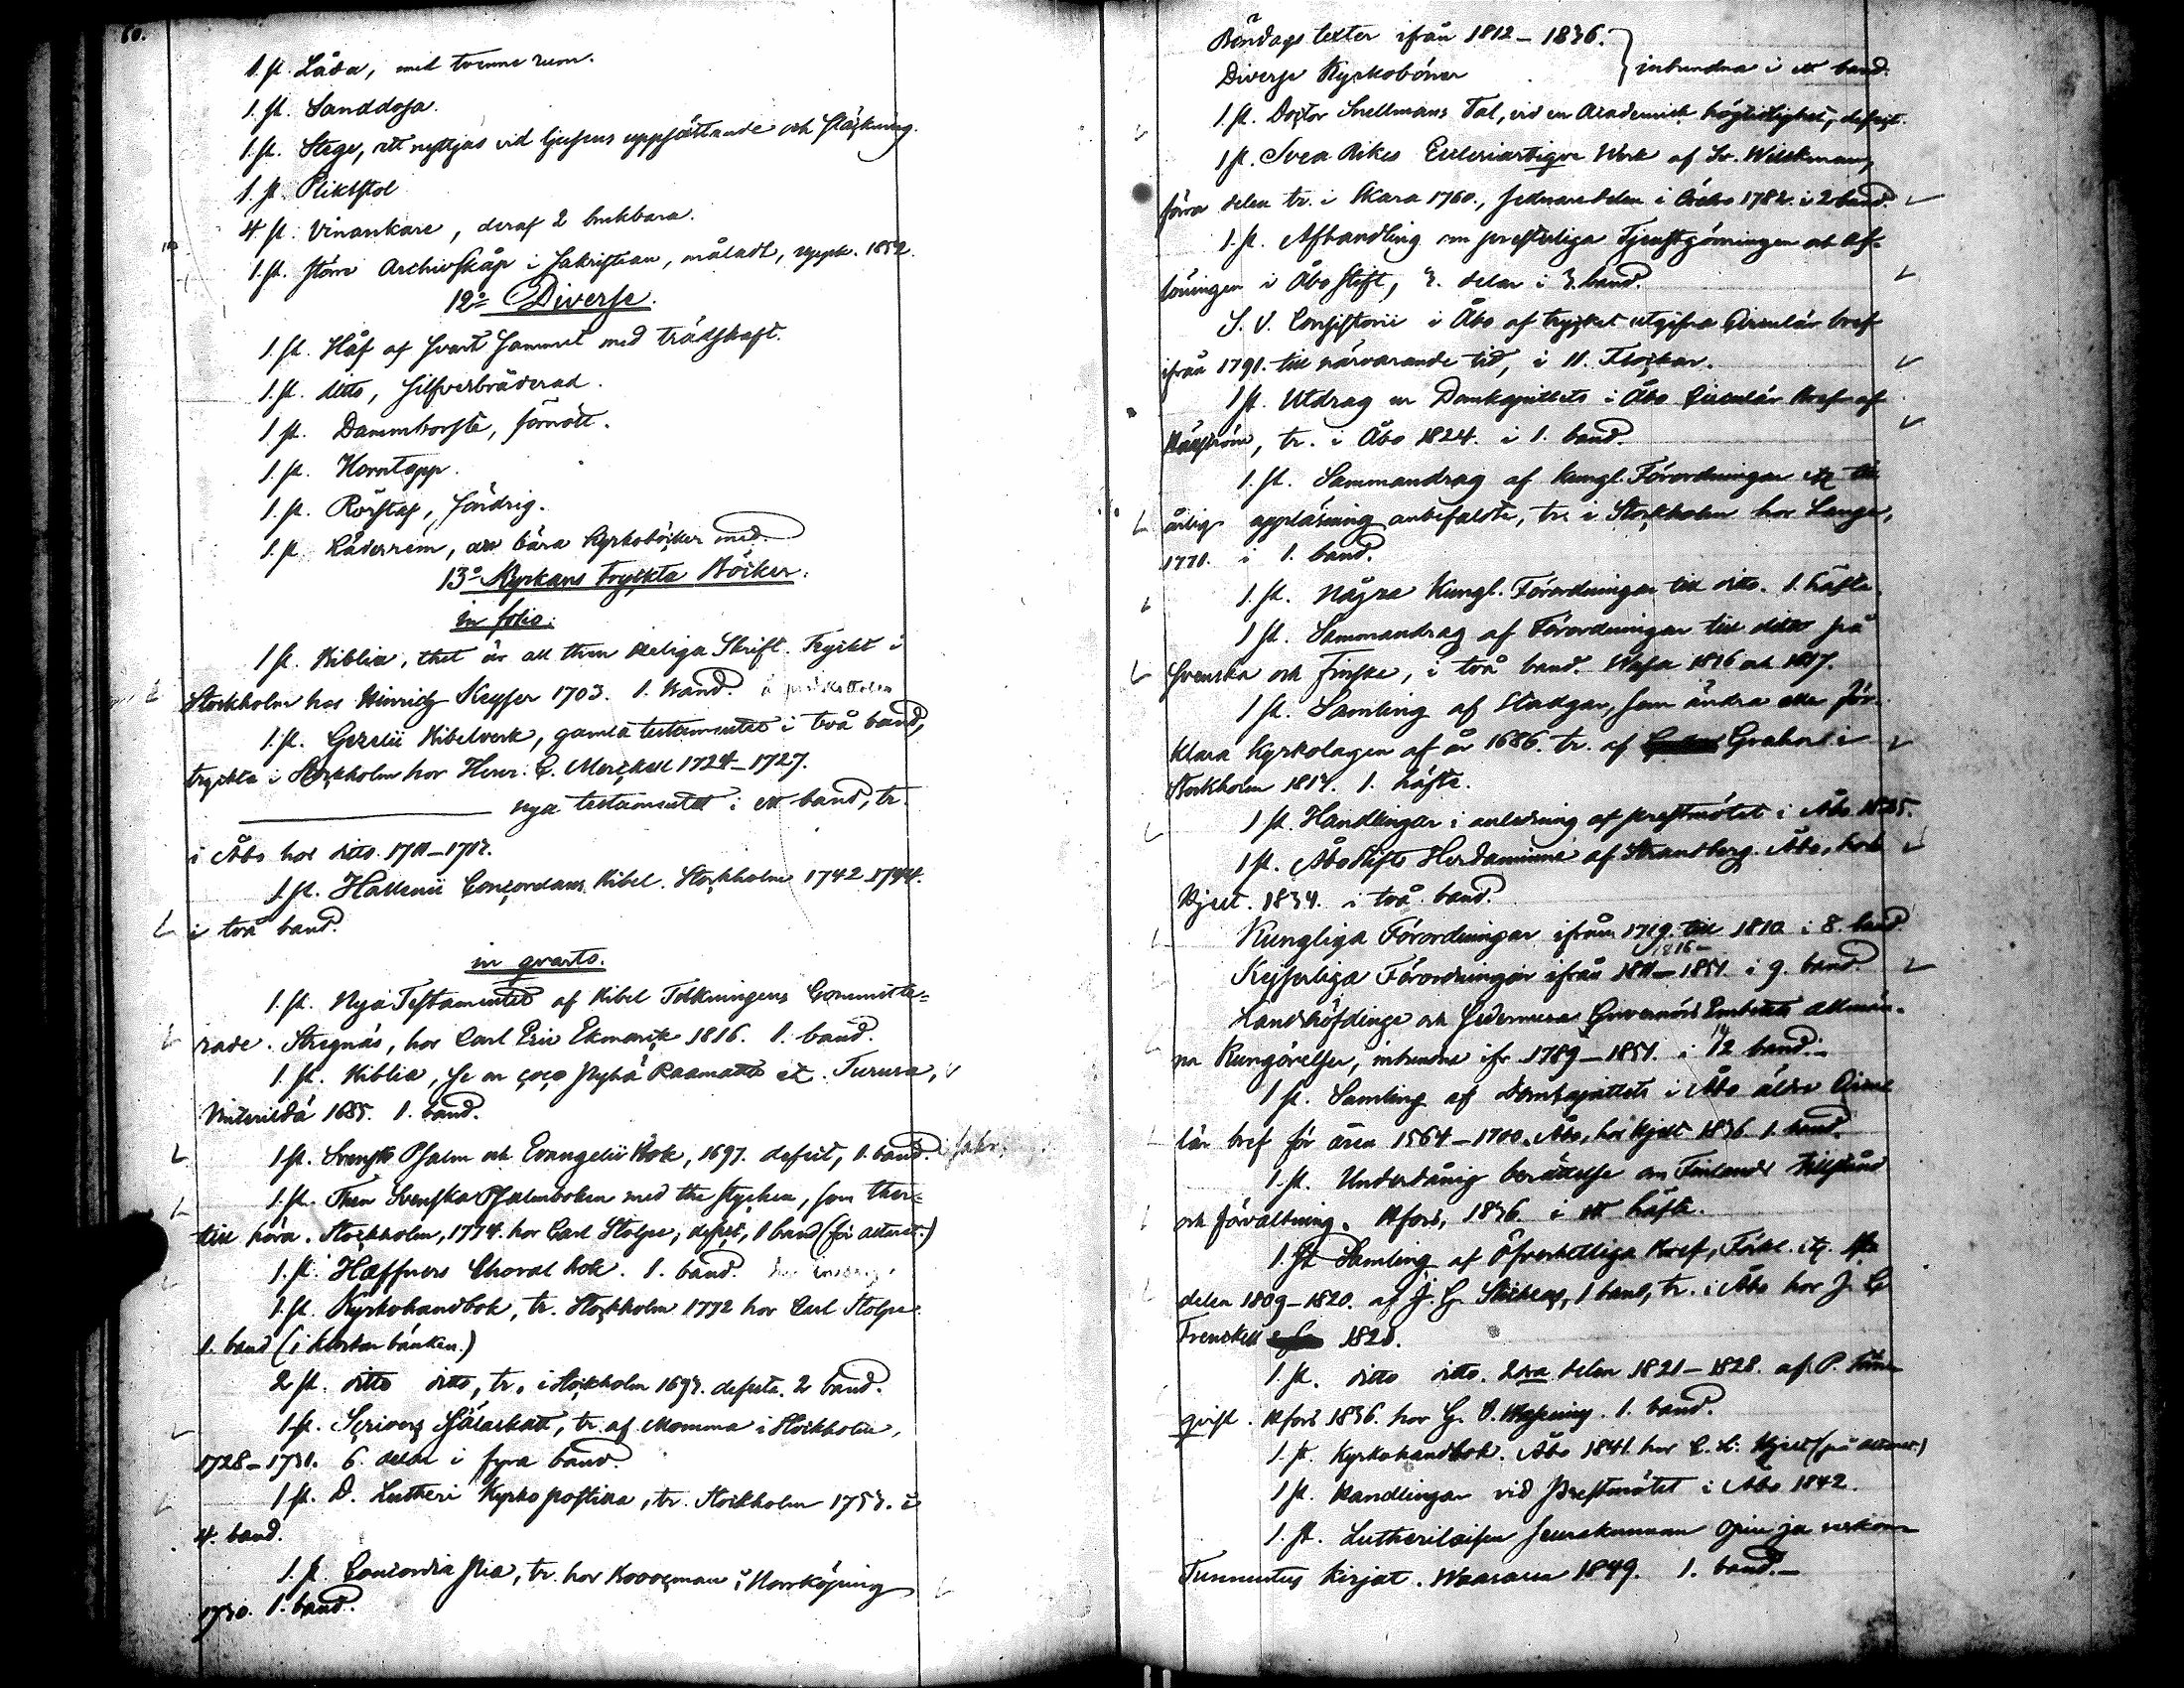 60.
1. st. Låda, med tvenne rum.
1. st. Sanddosa.
1. st. Stege, att nyttjas vid ljusens uppsättande och släckning.
1. st. Pliktstol
4. st. Vinankare, deraf 2 brukbara.
1. st. större Archivskåp i Sakristian, måladt, uppk. 1852.
12º Diverse.
1. st. Håf af svart Sammet med trädskaft.
1. st. ditto, silfverbräderad.
1 st. Dammborste, förnött.
1 st. Korntapp.
1. st. Rörstaf, söndrig.
1. st. Läderrem, att bära Kyrkoböcker med.
13º Kyrkans tryckta Böcker.
in folio.
1 st. Biblia, thet är all then Heliga Skrift. Tryckt i
Stockholm hos Hinrich Keyser 1703. 1. Band.
1. st. Gezelii Bibelverk, gamla testamentet i två band,
tryckta i Stockholm hos Henr. C. Merckell 1724–1727.
nya testamentet i ett band, tr.
i Åbo hos ditto. 1711–1713.
1. st. Hallenii Concordans Bibel. Stockholm 1742 1744.
i två band.
in qvarto.
1. st. Nya Testamentet af Bibel Tolkningens Committe=
rade. Stregnäs, hos Carl Eric Ekmarck 1816. 1. band.
1. st. Biblia, Se on coco Pyhä Raamattu etc. Turusa,
Winterildä 1685. 1. band.
1. st. Svensk Psalm och Evangelii Bok, 1697. defect, 1. band.
1. st. Then Svenska Psalmboken med the stycken, som ther=
till höra. Stockholm, 1774. hos Carl Stolpe, defect, 1 band (för altaret.)
1. st. Hæffners Choral bok. 1. band.
1. st. Kyrkohandbok, tr. Stockholm 1772 hos Carl Stolpe.
1. band (i klockar bänken.)
2 st. ditto ditto, tr. i Stockholm 1693. defecta. 2 band.
1. st. Scrivers Själaskatt, tr. af Momma i Stockholm,
1728–1731. 6. delar i fyra band.
1 st. D. Lutheri Kyrko postilla, tr. Stockholm 1753. i
4. band.
1. st. Concordia pia, tr. hos Broocman i Norrköping
1730. 1. band.
Böndags texter ifrån 1812–1836.
Diverse Kyrkoböner
inbundna i ett band.
1. st. Doctor Snellmans Tal, vid en Academisk högtidlighet, defect.
1 st. Svea Rikes Ecclesiastique Werk af Sv. Wilskman,
förra delen tr. i Skara 1760., sednare delen i Örebro 1782. i 2 band.
1. st. Afhandling om presterliga Tjenstgörningen och Af=
löningen i Åbo Stift, 3. delar i 3. band.
S. V. Consistorii i Åbo af trycket utgifna Circulär bref
ifrån 1791. till närvarande tid, i 11. Flockar.
1 st. Utdrag ur Domkapittlets i Åbo Circulär Bref af
tr. i Åbo 1824. i 1. band.
1. st. Sammandrag af Kungl. Förordningar etc till
årlig uppläsning anbefalde, tr. i Stockholm hos Lange,
1770. i 1. band.
1. st. Några Kungl. Förordningar till ditto. 1. häfte.
1 st. Sammandrag af Förordningar till ditto på
Svenska och Finska, i två band. Wasa 1816 och 1817.
1 st. Samling af Stadgar, som ändra eller för=
klara Kyrkolagen af år 1686. tr. af Grahn i
Stockholm 1813. 1. häfte.
1 st. Handlingar i anledning af prestmötet i Åbo 1825.
1 st. Åbo Stifts Herdaminne af Strandberg. Åbo, hos
Hjelt. 1834. i två band.
Kungliga Förordningar ifrån 1719. till 1810. i 8. band
1816–
Kejserliga Förordningar ifrån 1811–1851. i 9. band.
Landshöfdinge och sedermera Guvernörs Embetets allmän=
na Kungörelser, inbundne ifr. 1789–1851. i 12 band.
14
1 st. Samling af Domkapittlets i Åbo äldre Circu
lär bref för åren 1564–1700. Åbo, hos Hjelt 1836. 1. band.
1. st. Underdånig berättelse om Finlands tillstånd
och förvaltning. Hfors, 1836. i ett häfte.
1. st. Samling af Öfverhetliga Bref, Förkl. etc. 1sta
delen 1809–1820. af J. G. 1 band, tr. i Åbo hos J. C.
Frenckell 1821.
1. st. ditto ditto. 2dra delen 1821–1828. af P.
qvist. Hfors 1836. hos G. O. Wasenius. 1. band.
1. st. Kyrkohandbok. Åbo 1841. hos C. L. Hjelt (på altaret)
1 st. Handlingar vid Prestmötet i Åbo 1842.
1. st. Lutherilaisen seurakunnan Opin ja uskon
Tunnustus Kirjat. Waasassa 1849. 1. band.